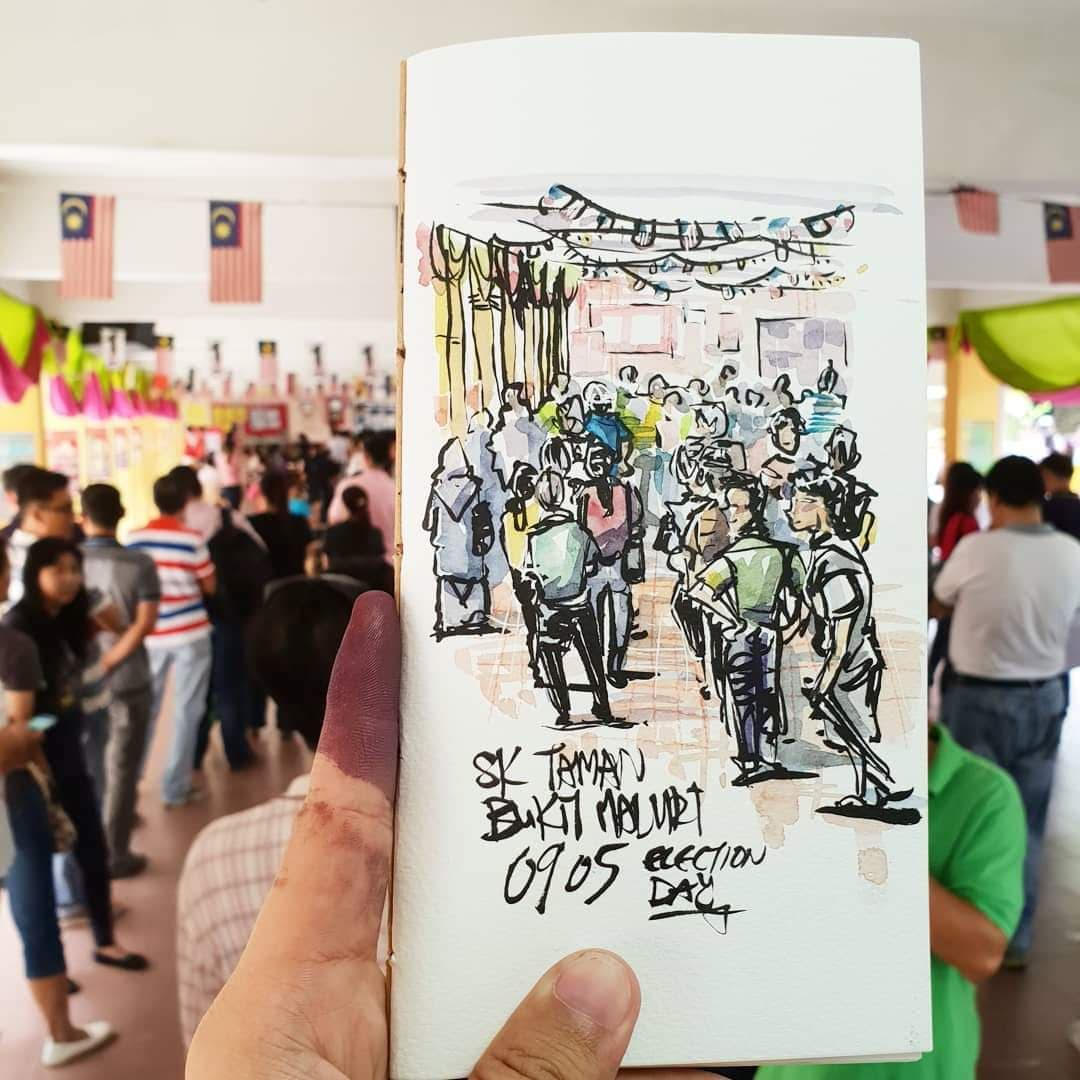 SK TAMAN
BUKIT MALURI
09 05 ELECTION
DAY